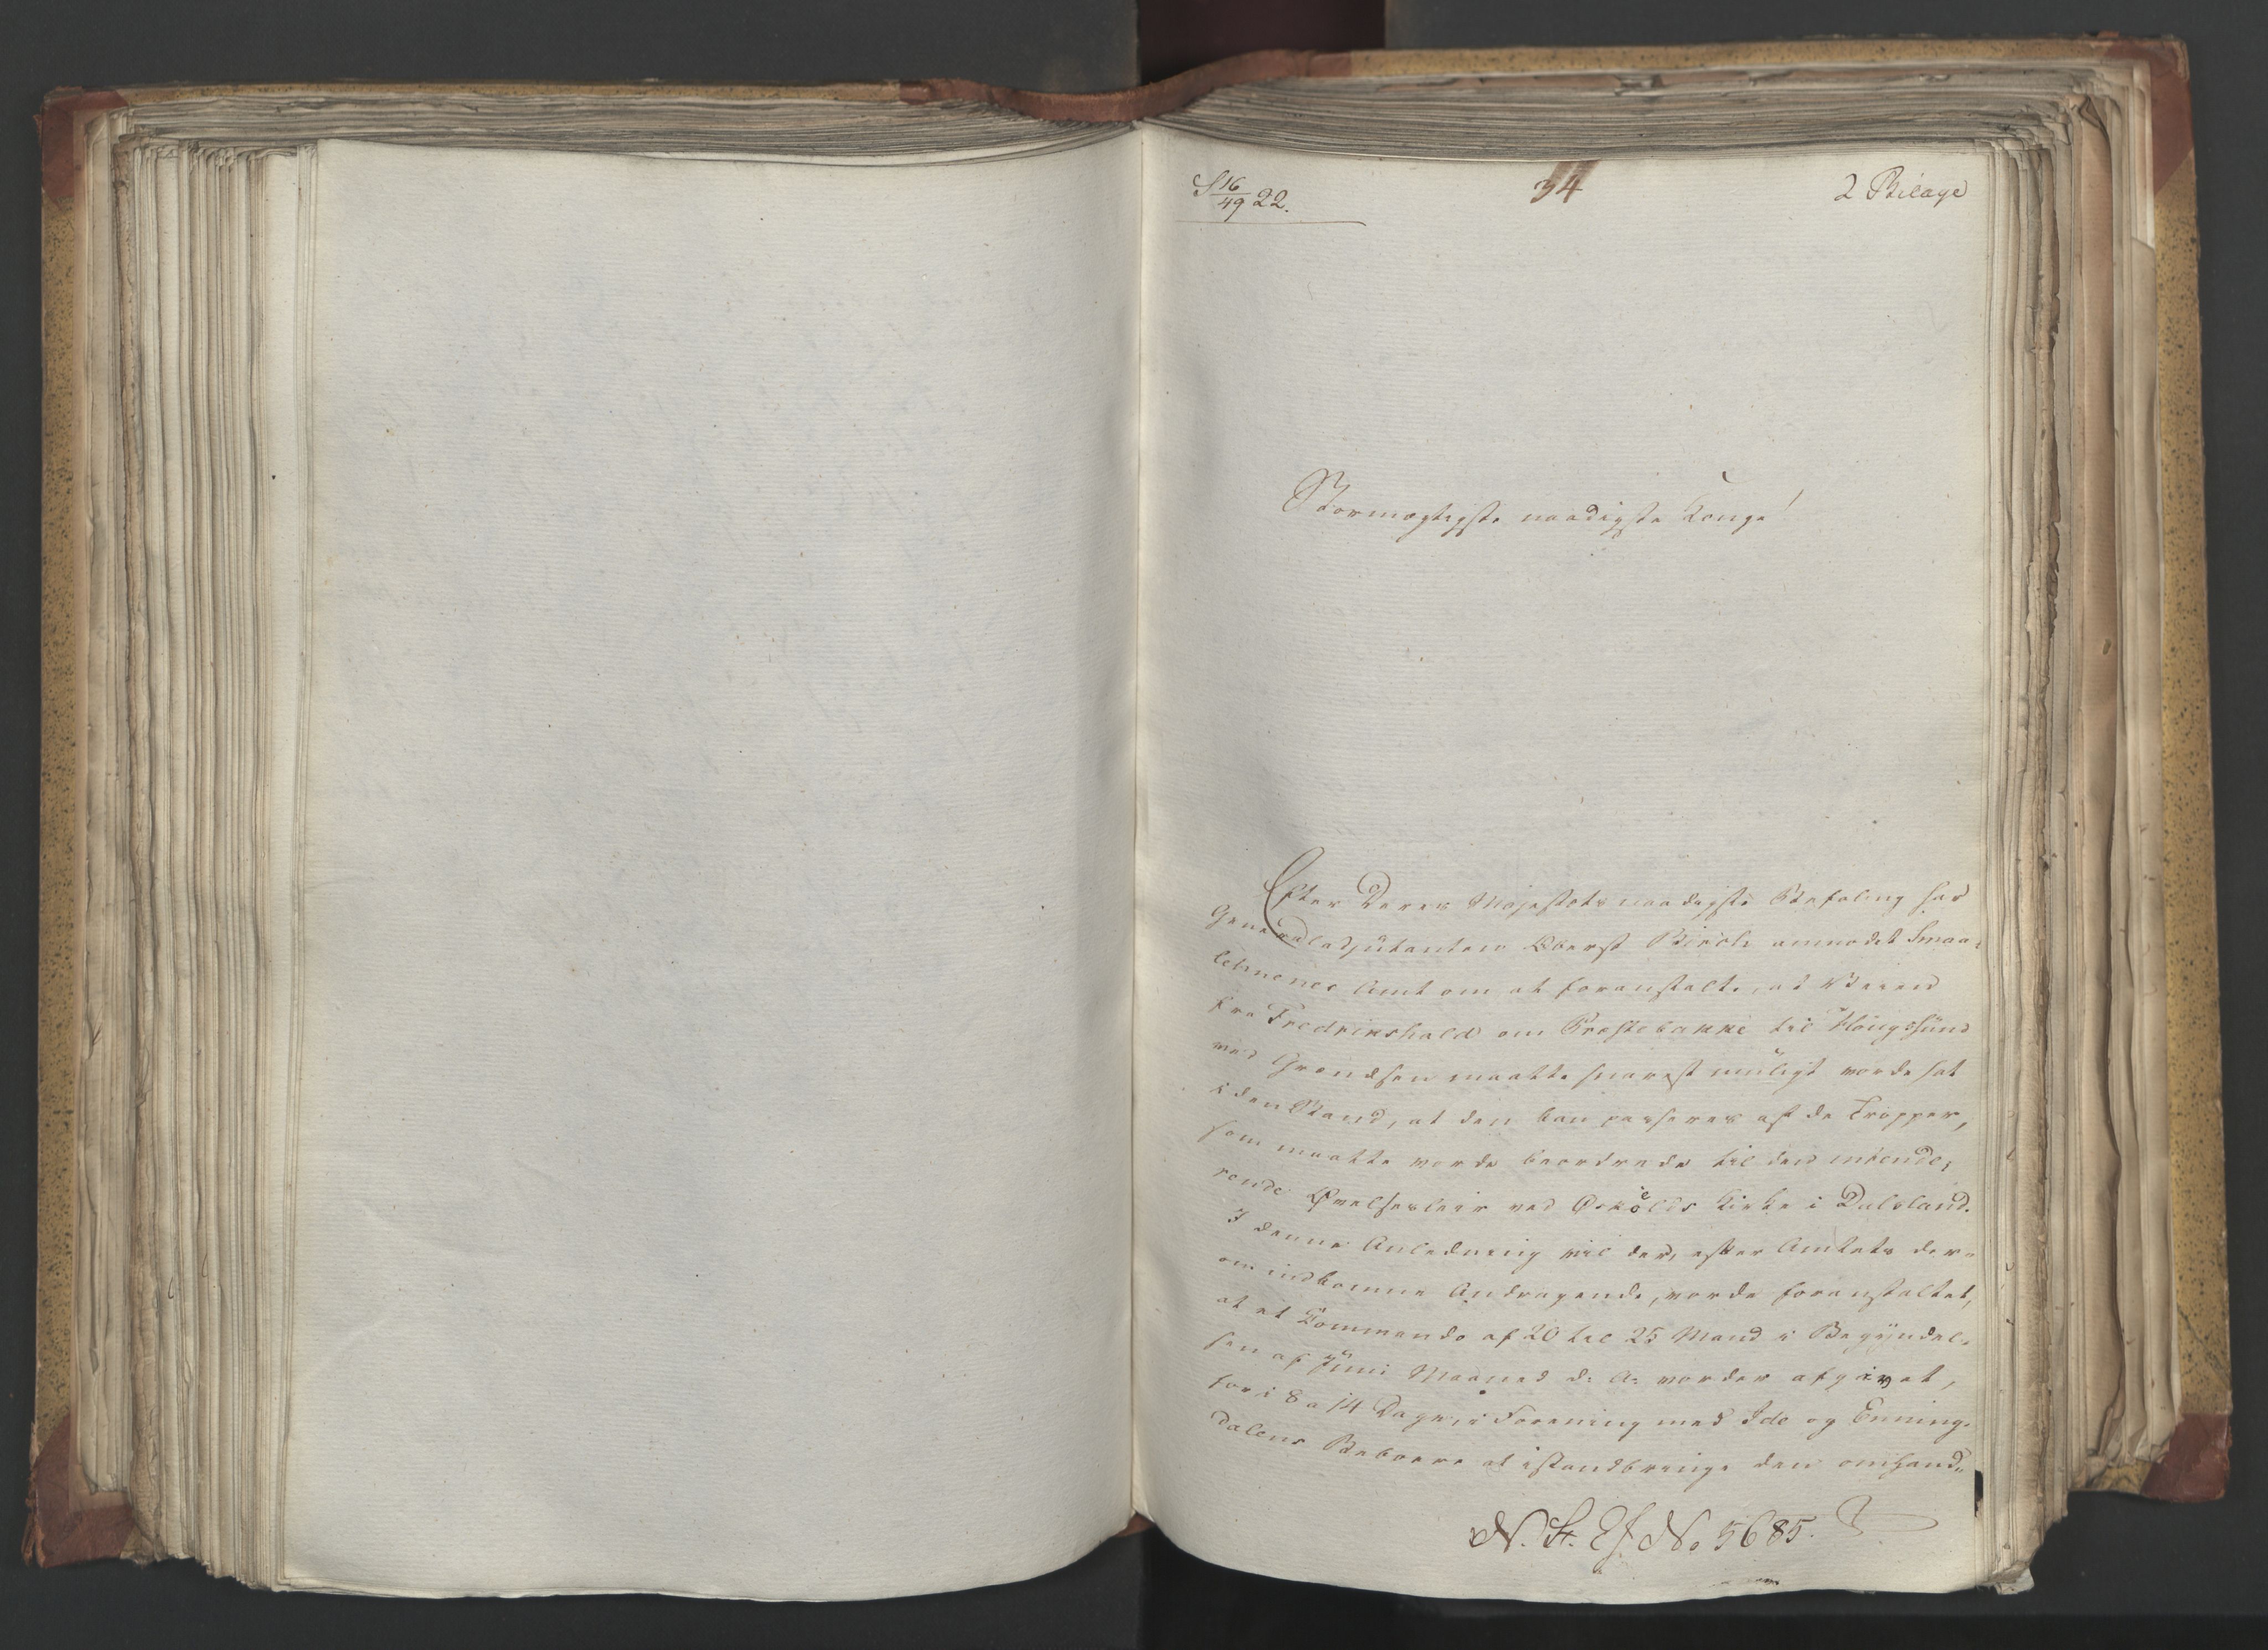 S 16/49 22.
34
2 Bilage
Stormægtigste naadigste Konge!
Efter Deres Majestets naadigste Befaling har
Generaladjutanten Oberst Birch anmodet Smaa-
lehnenes Amt om at foranstalte, at Veien
fra Fredrikshald om Prestebakke til Höugssund
ved Grændsen maatte snarest muligt vorde sat
i den Stand, at den kan passeres af de Tropper,
som maatte vorde beordrede til den intende-
rende Øvelsesleir ved Ørskölds Kirke i Dalsland.
I denne Anledning vil der, efter Amtets der-
om indkomne Andragende, vorde foranstaltet,
at et Kommando af 20 til 25 Mand i Begyndel-
sen af Juni Maaned d: A: vorder afgivet,
for i 8 a 14 Dage, i Forening med Ide og Enning-
dalens Beboere at istandbringe den omhand-
N. St. Ef. No 5685.